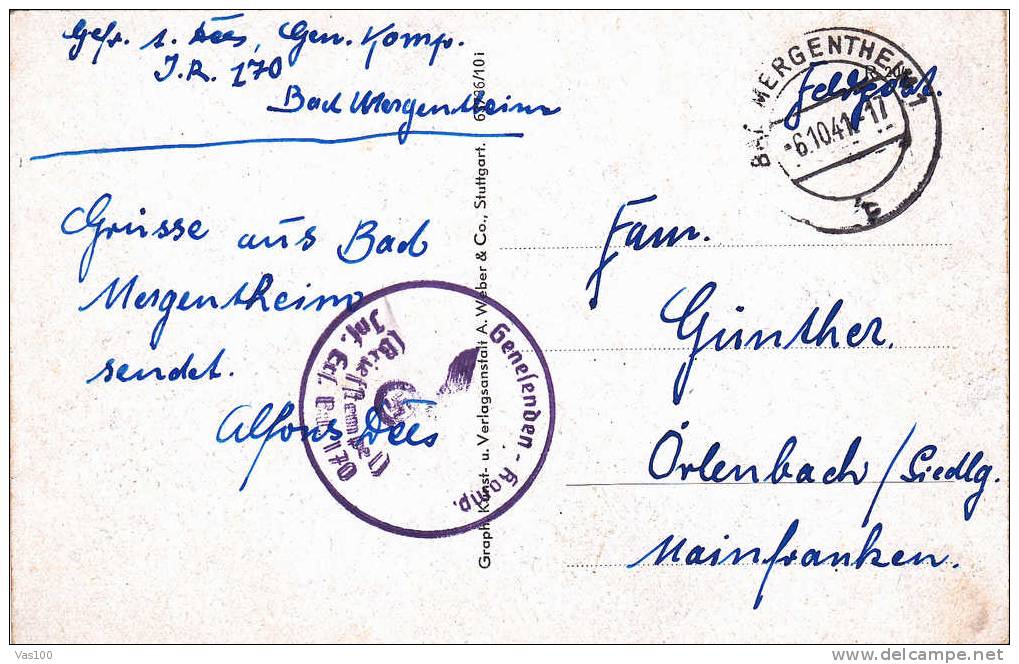 Gefr. A. Dées, Gen. Komp.
I.R. 170
Bad Mergentheim
Grüsse aus Bad
Mergentheim
sendet.
Alfons Dées
Graph. Kunst- u. Verlagsanstalt A. Weber & Co., Stuttgart.
BAD MERGENTHEIM 1
-6.10.41.-17
c
Feldpost.
Fam.
Günther.
Örlenbach/Siedlg.
Mainfranken.
Genesenden-Komp.
Inf. Ers. Batl.
(Briefstempel)
Vas100
delcampe.net